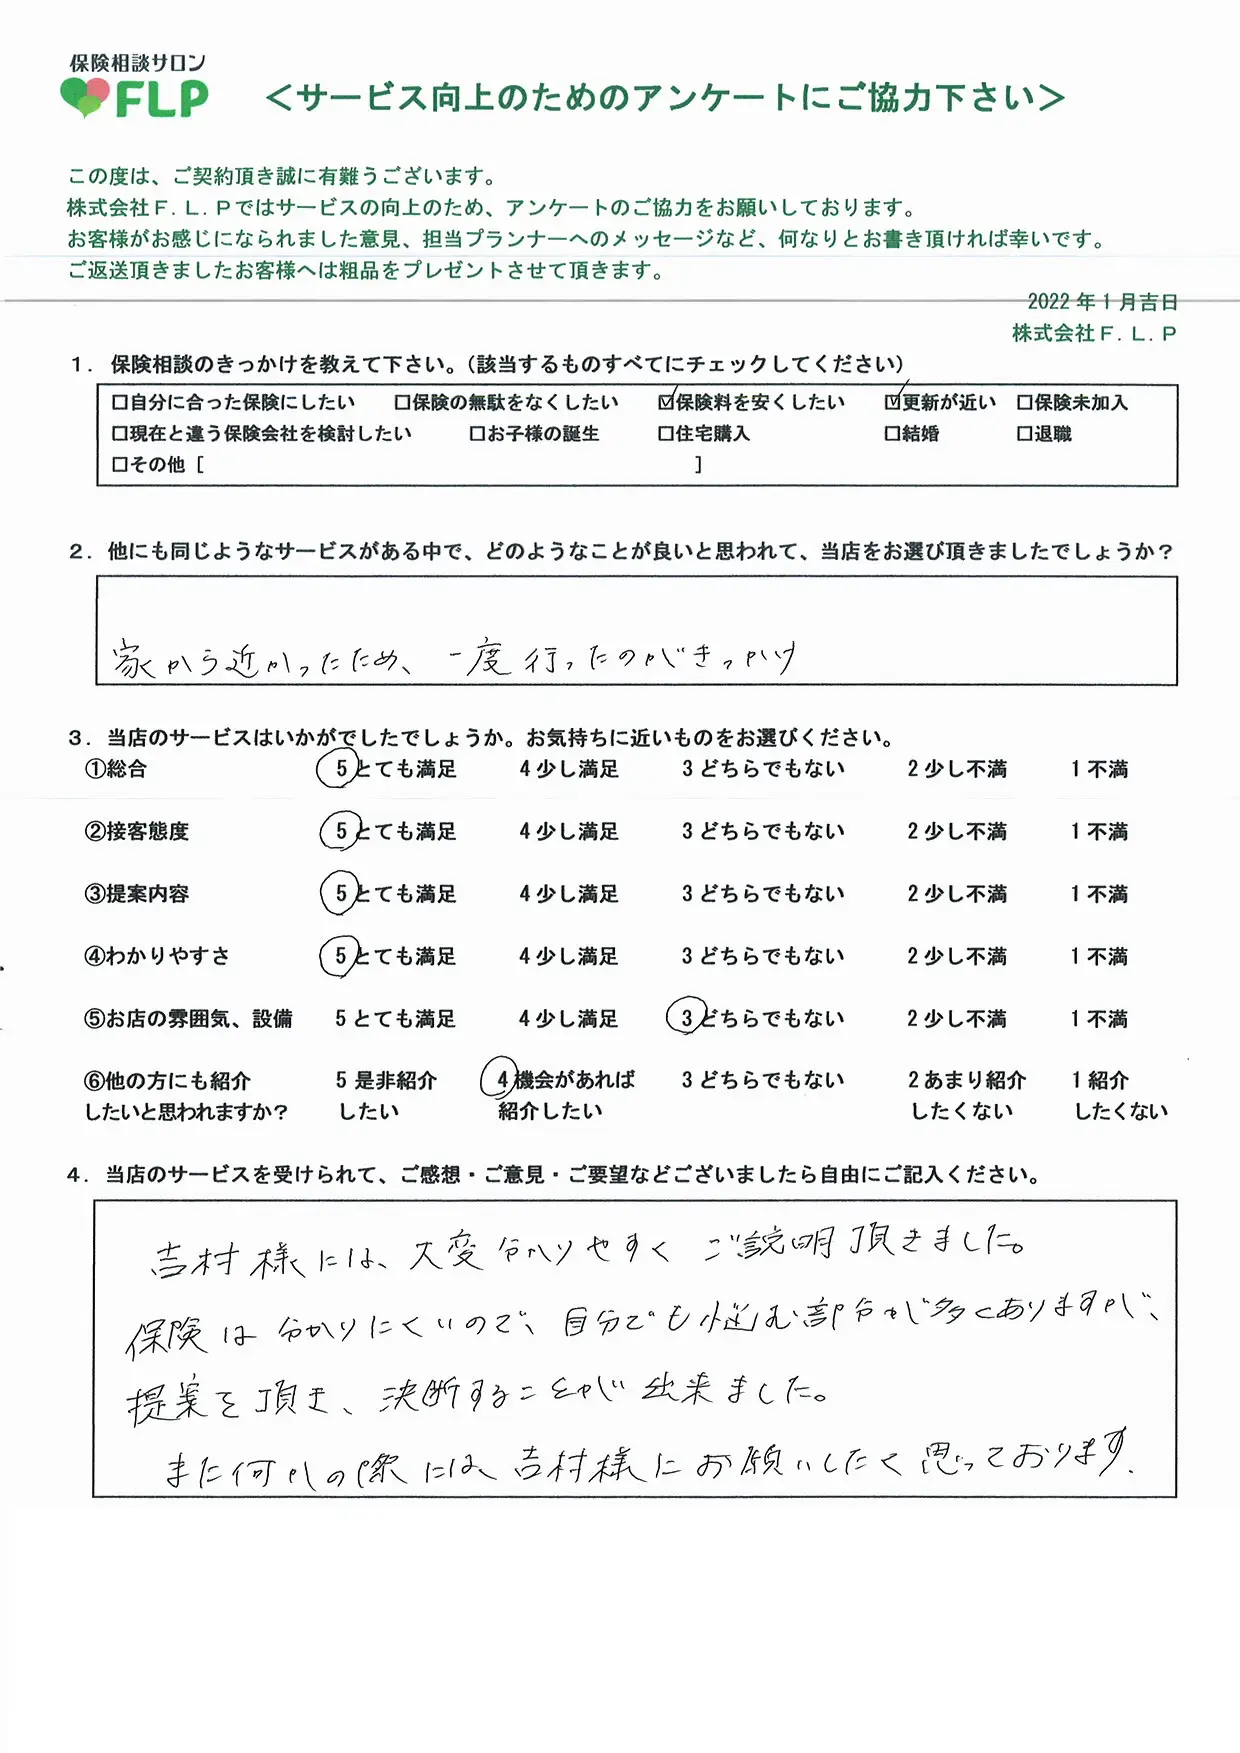 保険相談サロン
FLP
＜サービス向上のためのアンケートにご協力下さい＞
この度は、ご契約頂き誠に有難うございます。
株式会社Ｆ．Ｌ．Ｐではサービスの向上のため、アンケートのご協力をお願いしております。
お客様がお感じになられました意見、担当プランナーへのメッセージなど、何なりとお書き頂ければ幸いです。
ご返送頂きましたお客様へは粗品をプレゼントさせて頂きます。
2022 年 1 月吉日
株式会社Ｆ．Ｌ．Ｐ
１．保険相談のきっかけを教えて下さい。（該当するものすべてにチェックしてください）
□自分に合った保険にしたい □保険の無駄をなくしたい ☑保険料を安くしたい ☑更新が近い □保険未加入
□現在と違う保険会社を検討したい □お子様の誕生 □住宅購入 □結婚 □退職
□その他［ ］
２．他にも同じようなサービスがある中で、どのようなことが良いと思われて、当店をお選び頂きましたでしょうか？
家から近かったため、一度行ったのがきっかけ
３．当店のサービスはいかがでしたでしょうか。お気持ちに近いものをお選びください。
①総合 5 とても満足 4 少し満足 3 どちらでもない 2 少し不満 1 不満
②接客態度 5 とても満足 4 少し満足 3 どちらでもない 2 少し不満 1 不満
③提案内容 5 とても満足 4 少し満足 3 どちらでもない 2 少し不満 1 不満
④わかりやすさ 5 とても満足 4 少し満足 3 どちらでもない 2 少し不満 1 不満
⑤お店の雰囲気、設備 5 とても満足 4 少し満足 3 どちらでもない 2 少し不満 1 不満
⑥他の方にも紹介 5 是非紹介 4 機会があれば 3 どちらでもない 2 あまり紹介 1 紹介
したいと思われますか？ したい 紹介したい したくない したくない
４．当店のサービスを受けられて、ご感想・ご意見・ご要望などございましたら自由にご記入ください。
吉村様には、大変分かりやすく ご説明頂きました。
保険は分かりにくいので、自分でも悩む部分が多くありますが、
提案を頂き、決断することが出来ました。
また何かの際には、吉村様にお願いしたく思っております.